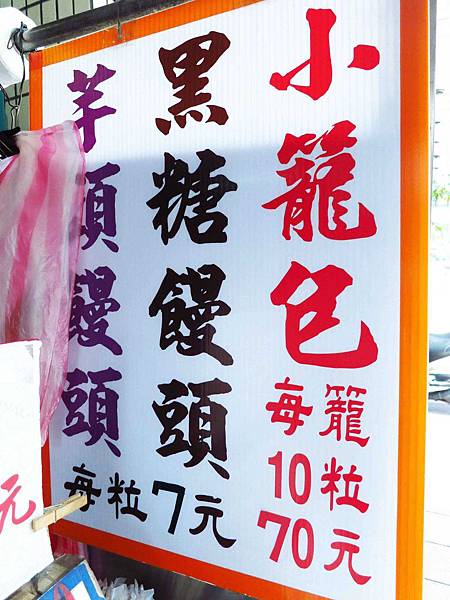 小籠包
每籠
10粒
70元
黑糖饅頭
芋頭饅頭
每粒7元
元